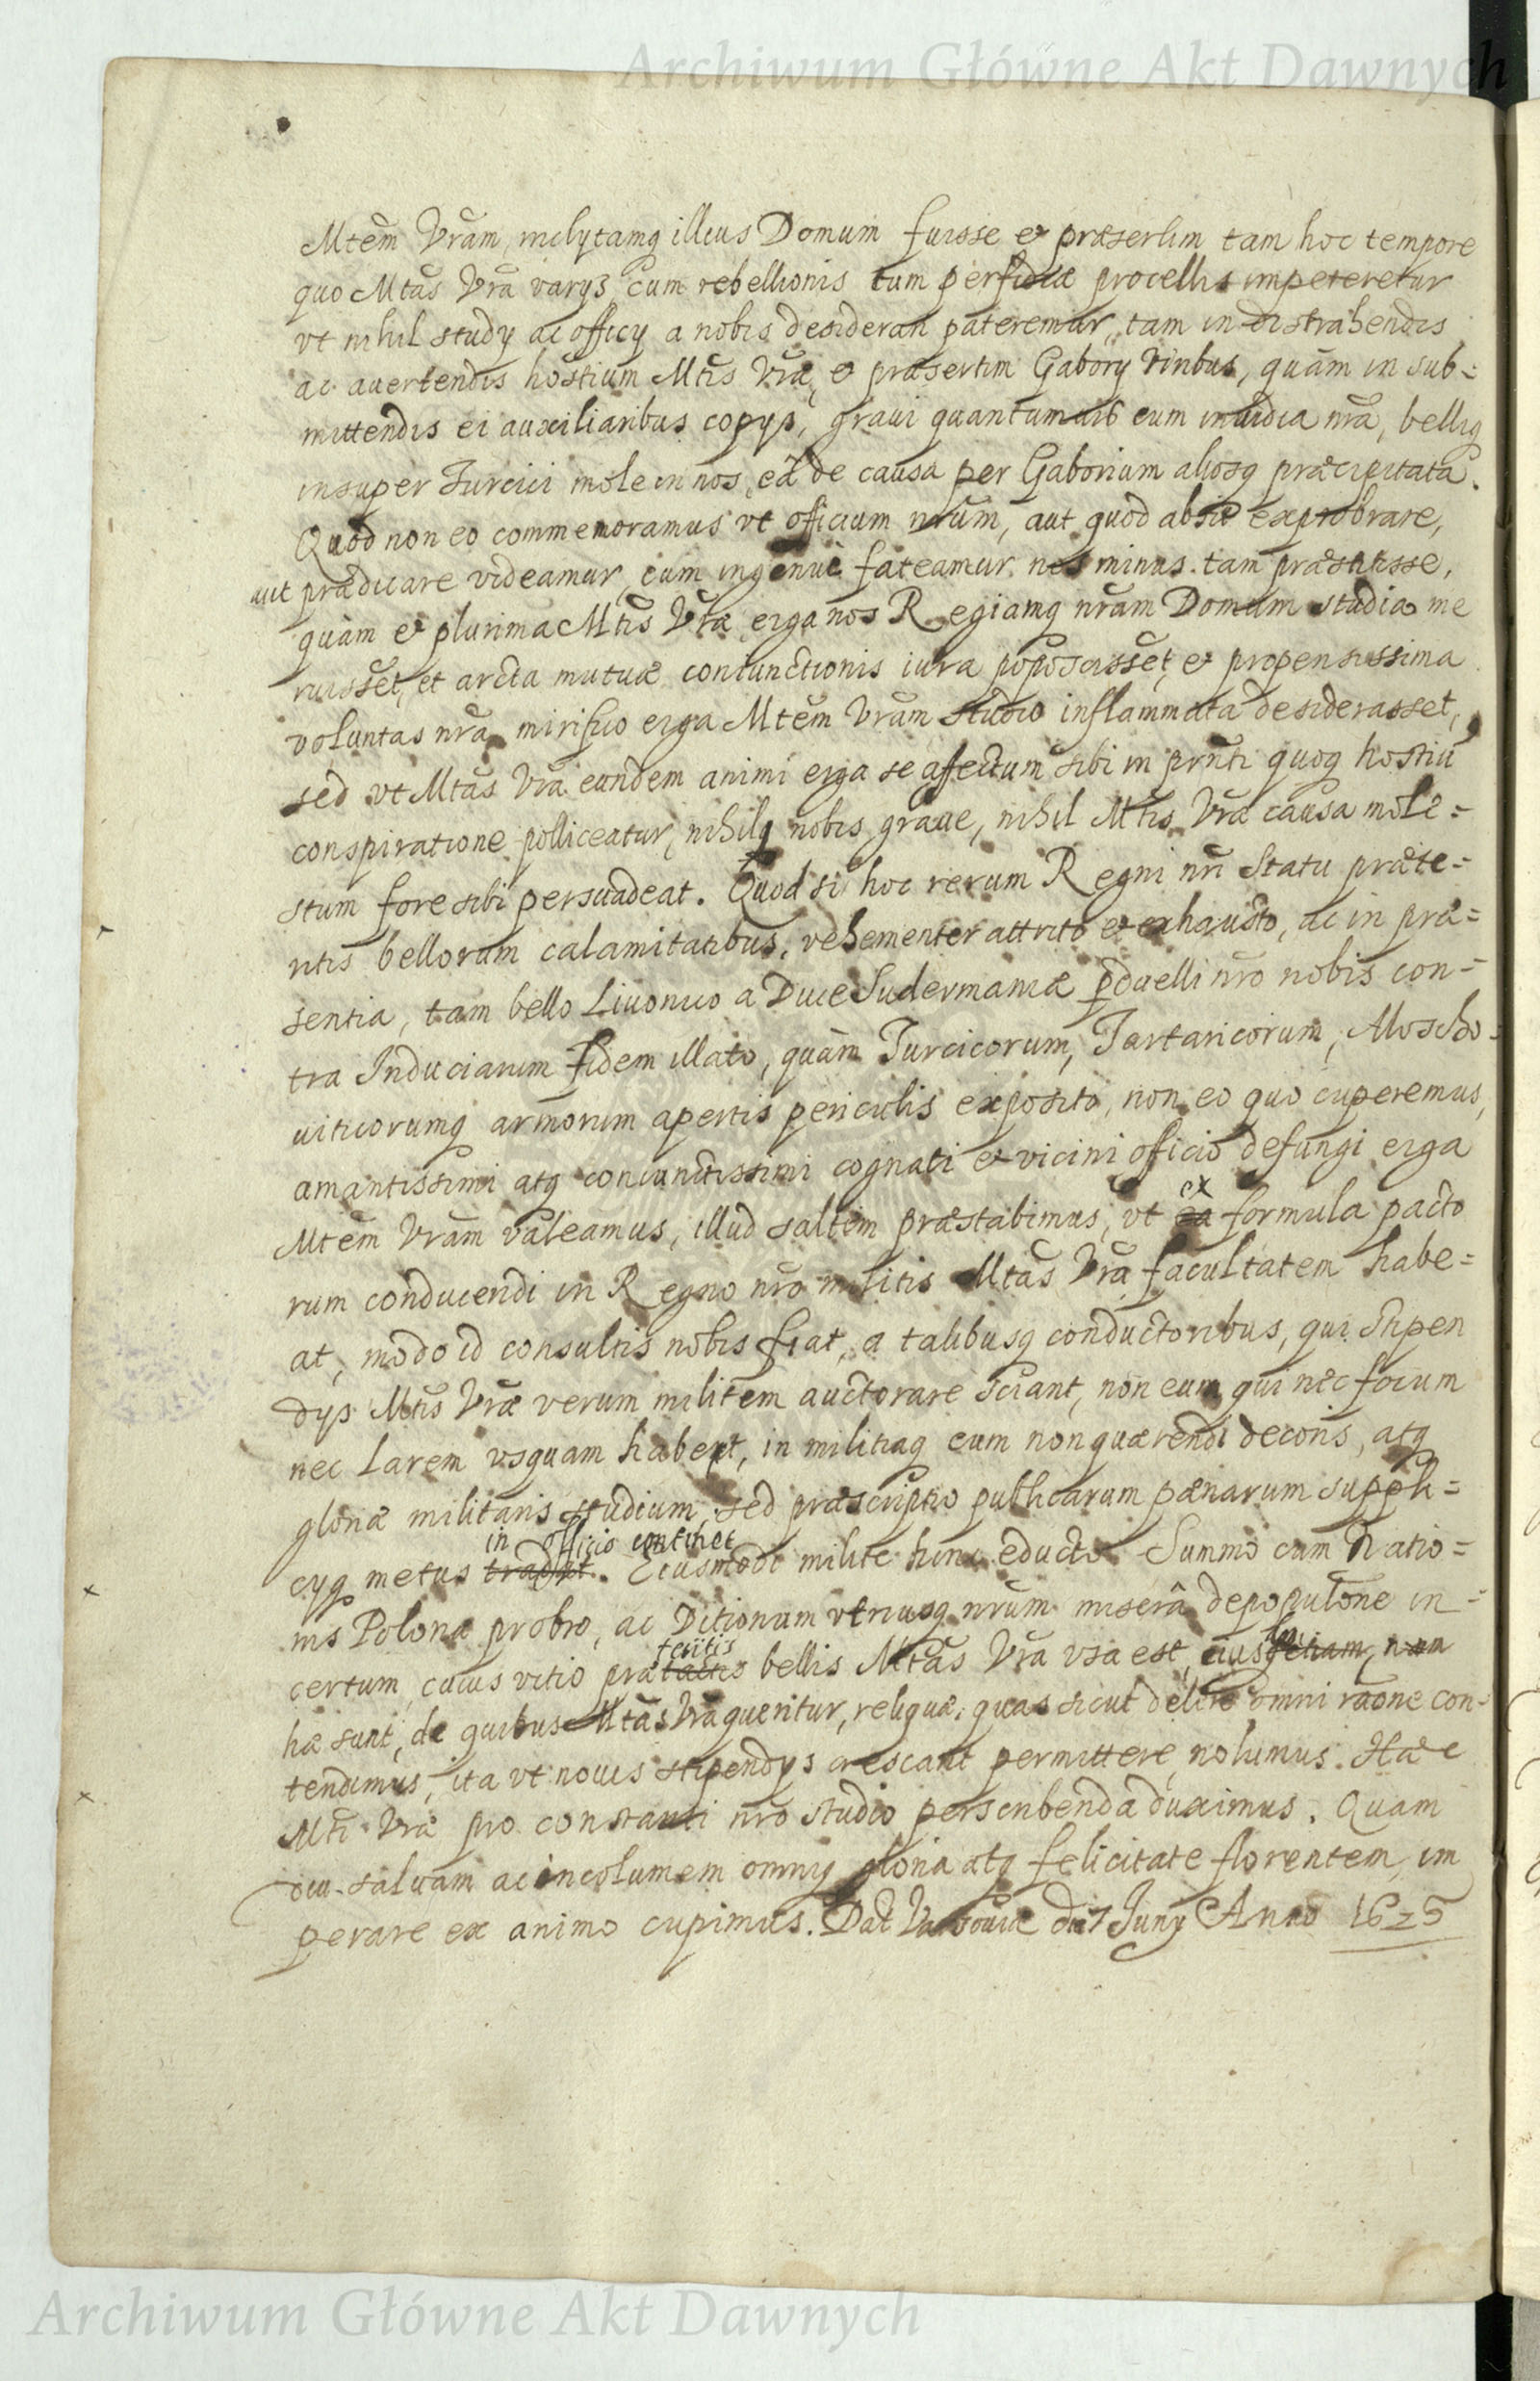 Archiwum Główne Akt Dawnych
Mtem Vram, inclytamq illius Domum fuisse et præsertim tam hoc tempore
quo Mtas Vra varijs cum rebellionis tum perfidiæ procellis impeteretur
vt nihil studij ac officij a nobis desiderari pateremur, tam in distrahendis
ac auertendis hostium Mtis Vræ, et præsertim Gabory viribus, quàm in sub=
mittendis ei auxiliaribus copijs, graui quantumuis cum inuidia nra, belliq
insuper Turcici mole in nos, eâ de causa per Gaborium aliosq præcipitata.
Quod non eo commemoramus vt officium nrum, aut quod absit exprobrare,
aut prædicare videamur, cum ingenuè fateamur nos minus tam præstitisse,
quàm et plurima Mtis Vræ erga nos Regiamq nram Domum studia me
ruissét, et arcta mutuæ coniunctionis iura poposcissét, et propensissima
voluntas nra mirifico erga Mtem Vram studio inflammata desiderasset,
sed vt Mtas Vra eundem animi erga se afectum sibi in prnti quoq hostiu
conspiratione polliceatur, nihilq nobis graue, nihil Mtis Vræ causa mole=
stum fore sibi persuadeat. Quod si hoc rerum Regni nri Statu præte=
ritis bellorum calamitatibus, vehementer attrito et exhausto, ac in præ=
sentia, tam bello Liuonico a Duce Sudermaniæ pduelli nro nobis con=
tra Induciarum fidem illato, quàm Turcicorum, Tartaricorum, Moscho=
uiticorumq armorum apertis periculis exposito, non eo quo cuperemus,
amantissimi atq coniunctissimi cognati et vicini officio defungi erga
ex
Mtem Vram valeamus, illud saltem præstabimus, vt ea formula pacto
rum conducendi in Regno nro militis Mtas Vra facultatem habe=
at, modo id consultis nobis fiat, a talibusq conductoribus, qui Stipen
dijs Mtis Vræ verum militem auctorare sciant, non eum qui nec focum
nec Larem vsquam habent, in militiaq eum non quærendi decoris, atq
gloriæ militaris studium, sed præscriptio publicarum pænarum suppli=
in officio continet
cijq metus tradit. Eiusmodi milite hinc educto Summo cum Natio=
nis Polonæ probro, ac Ditionum vtriusq nrum miserâ depopulone in=
teritis
certum, cuius vitio prætactis bellis Mtas Vra vsa est, eius etiam, nun
hæ sunt, de quibus Mtas Vra queritur, reliquæ, quas sicut delere omni raone con=
tendimus, ita vt nouis stipendijs crescant permittere nolumus. Hæc
Mti Vræ pro constanti nro studio perscribenda duximus. Quam
diu saluam ac incolumem omniq gloria atq felicitate florentem, im
perare ex animo cupimus. Dat Varsouiæ die 7 Junij Anno 1625
Archiwum Główne Akt Dawnych